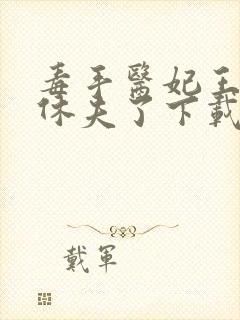 毒手醫妃王
休夫了下載
戴軍